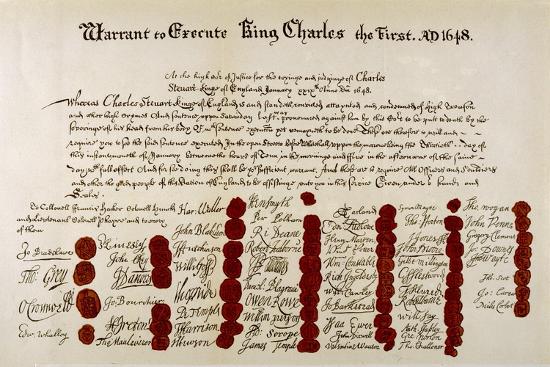 Warrant to Execute King Charles the First. AD 1648.
At the high Co't of Justice for the tryinge and judginge of Charles
Steuart Kinge of England January xxixth Anno Dni 1648.
Whereas Charles Steuart Kinge of England is and standeth convicted attaynted and condemned of High Treason
and other high Crymes And sentence upon Saturday last was pronounced against him by this Co't to be putt to death by the
severinge of his head from his body Of wch sentence execucon yet remayneth to be done These are therefore to will and
require you to see the said sentence executed In the open Streete before Whitehall upon the morrowe being the Thirtieth day of
this instante moneth of January betweene the houres of Tenn in the morninge and five in the afternoone of the same
day wth full effect And for soe doing this shall be your sufficient warrant And these are to require All Officers and Souldiers
and other the good people of this Nation of England to be assistinge unto you in this service Given under our hands and
Seales
To Collonell Francis Hacker Colonell Huncks
and Lieutenant Colonell Phayre and to every
of them
Jo Bradshawe
Tho Grey
O Cromwell
Edw Whalley
M Livesey
John Okey
J Danvers
Jo Bourchier
H Ireton
Tho Mauleverer
Har Waller
John Blakiston
J Hutchinson
Willi Goff
T Pride
P Temple
T Harrison
J Hewson
Hen Smyth
Per Pelham
Ri Deane
Robert Tichborne
H Edwardes
Daniel Blagrave
Owen Rowe
William Purefoy
Ad Scrope
James Temple
A Garland
Edm Ludlowe
Henry Marten
Vinct Potter
Wm Constable
Rich Ingoldesby
Will Cawley
Jo Barkstead
Isaa Ewer
John Dixwell
Valentine Wauton
Symon Mayne
Tho Horton
J Jones
John Moore
Gilbt Millington
G Fleetwood
J Alured
Robt Lilburne
Will Say
Anth Stapley
Gre Norton
Tho Challoner
Tho Wogan
John Venn
Gregory Clement
Jo Downes
Tho Wayte
Tho Scot
Jo Carew
Miles Corbet